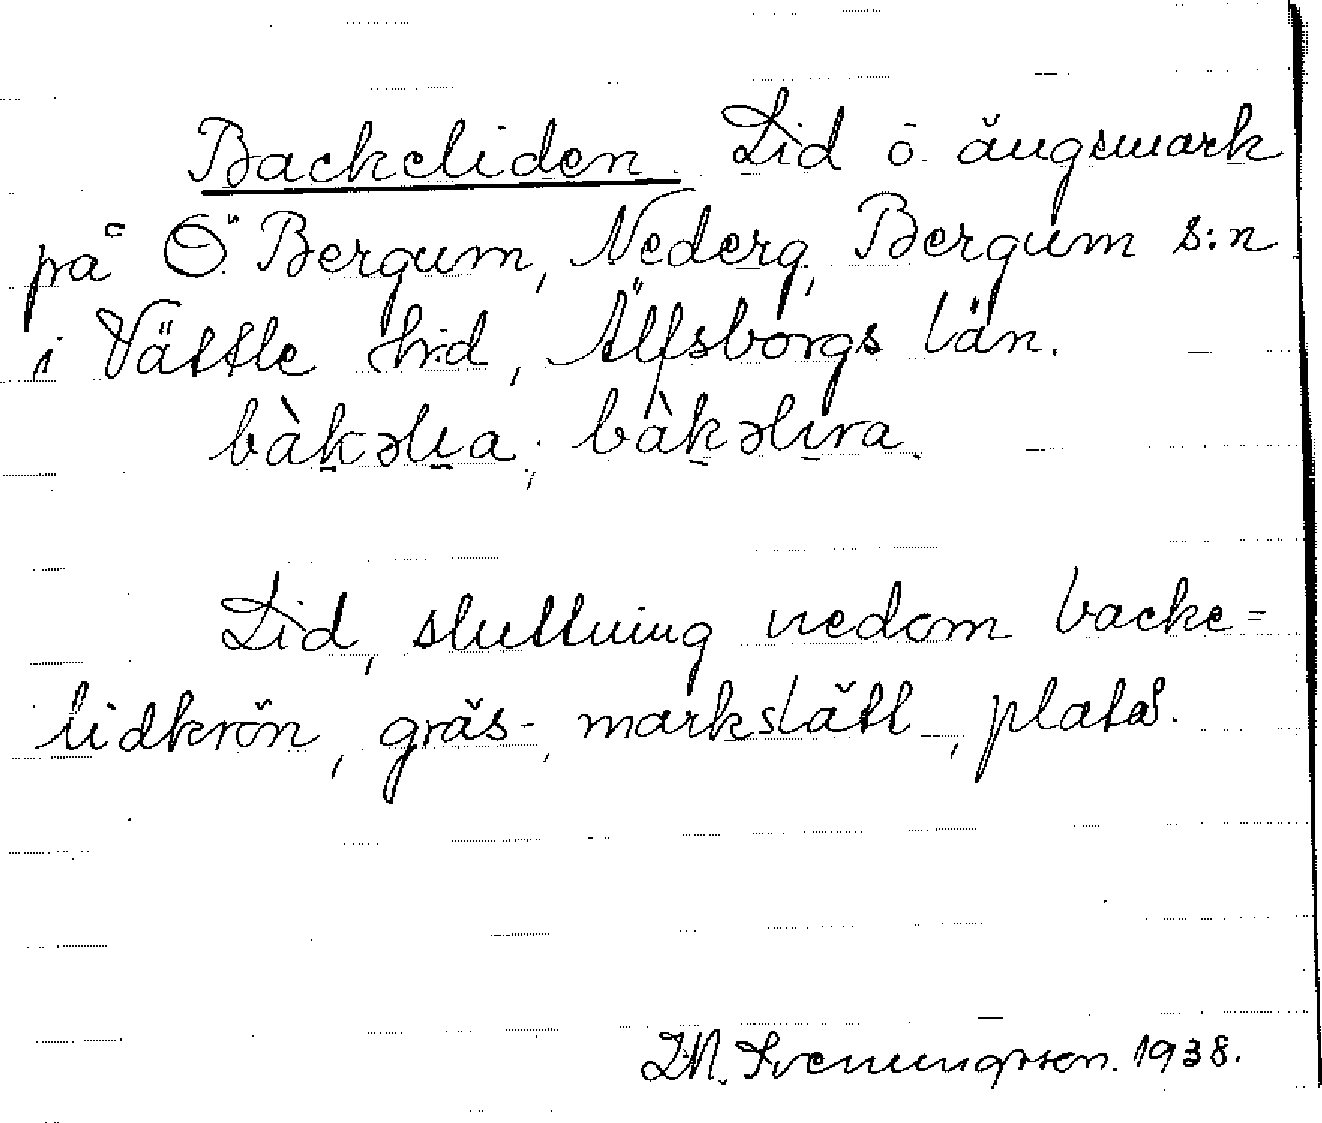 Backeliden. Lid ö. ängsmark
på Ö. Bergum, Nederg., Bergum s:n
i Vättle hrd, Älfsborgs län.
bàkəlıa; bàkəlıra.
Lid, sluttning nedom backe=
lidkrön, gräs-, markslätt-, plats.
J.N. Svenungsson. 1938.